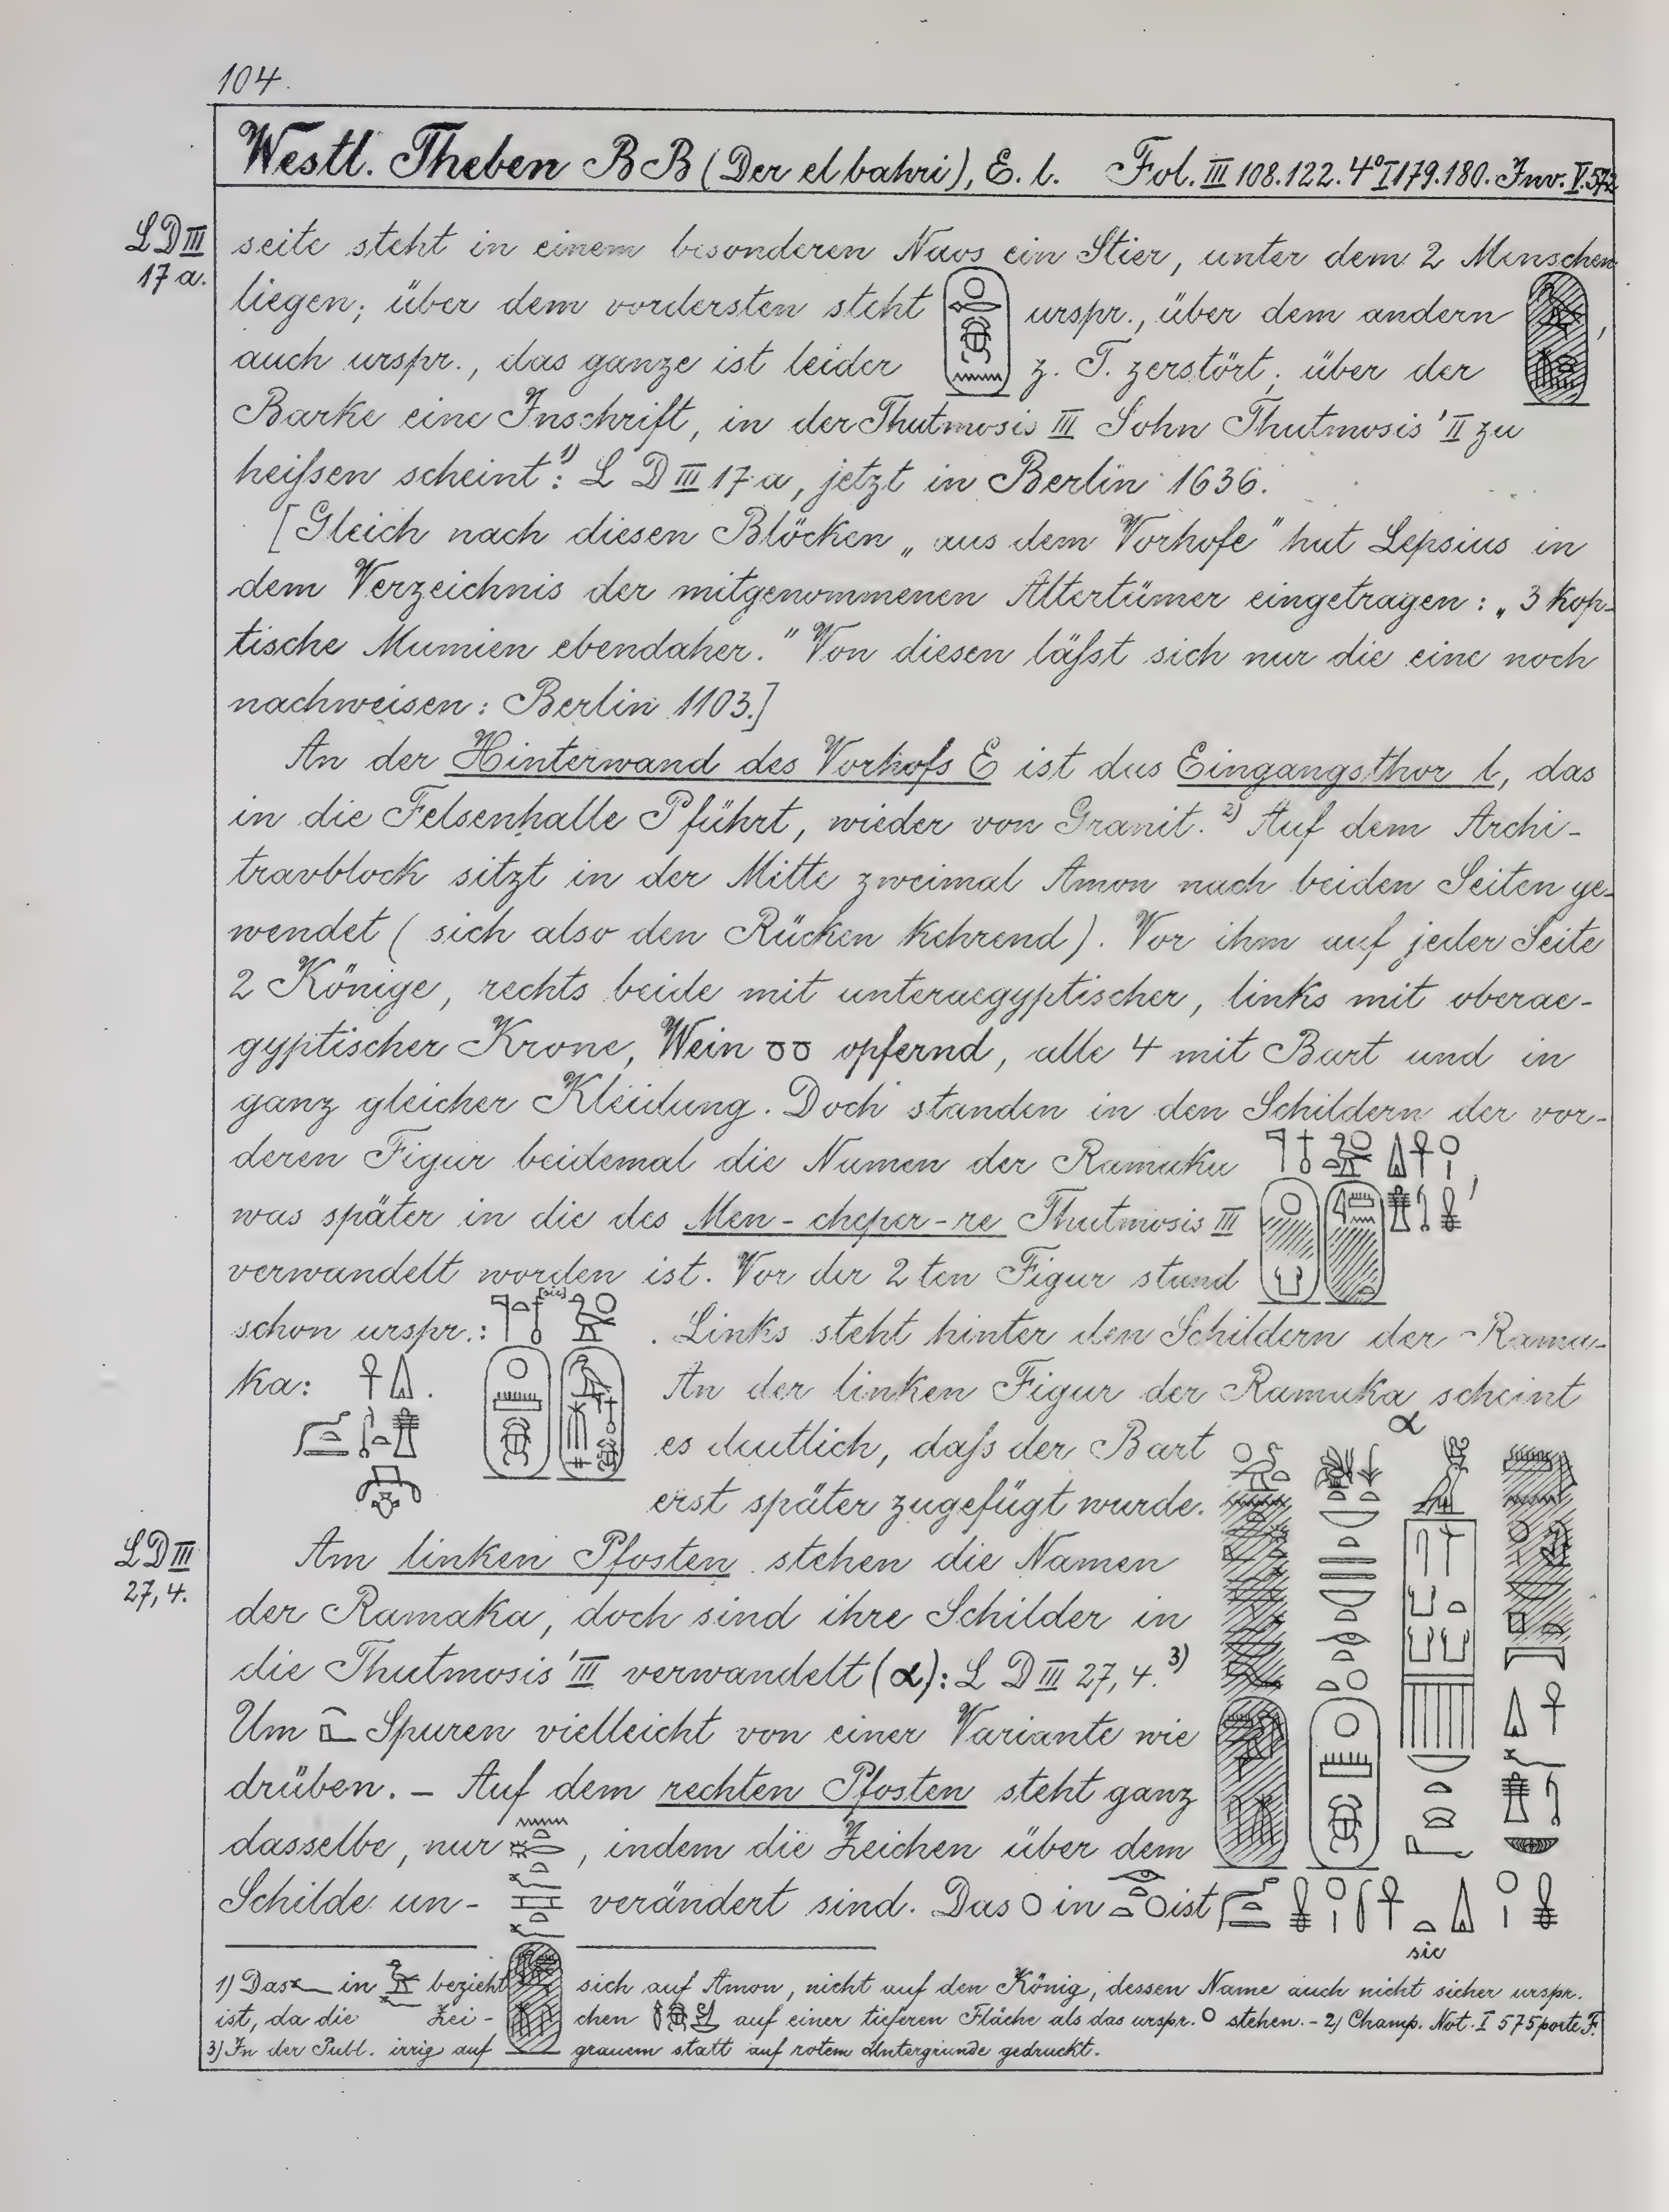 104.
Westl. Theben BB (Der el bahri), E. l. Fol. III 108.122. 4° I 179.180. Inv. V. 572
LD III
17 a.
seite steht in einem besonderen Naos ein Stier, unter dem 2 Menschen
liegen; über dem vordersten steht urspr., über dem andern ,
auch urspr., das ganze ist leider z. T. zerstört; über der
Barke eine Inschrift, in der Thutmosis III Sohn Thutmosis' II zu
heißen scheint.¹⁾: L D III 17 a, jetzt in Berlin 1636.
[Gleich nach diesen Blöcken „aus dem Vorhofe" hat Lepsius in
dem Verzeichnis der mitgenommenen Altertümer eingetragen: „3 kop-
tische Mumien ebendaher." Von diesen läßt sich nur die eine noch
nachweisen: Berlin 1103.]
An der Hinterwand des Vorhofs E ist das Eingangsthor l, das
in die Felsenhalle P führt, wieder von Granit.²⁾ Auf dem Archi-
travblock sitzt in der Mitte zweimal Amon nach beiden Seiten ge-
wendet (sich also den Rücken kehrend). Vor ihm auf jeder Seite
2 Könige, rechts beide mit unteraegyptischer, links mit oberae-
gyptischer Krone, Wein opfernd, alle 4 mit Bart und in
ganz gleicher Kleidung. Doch standen in den Schildern der vor-
deren Figur beidemal die Namen der Ramaka ,
was später in die des Men-cheper-re Thutmosis III
verwandelt worden ist. Vor der 2ten Figur stand
[sic]
schon urspr.: . Links steht hinter den Schildern der Rama-
ka: . An der linken Figur der Ramaka scheint
es deutlich, daß der Bart
erst später zugefügt wurde.
α
LD III
27,4.
Am linken Pfosten stehen die Namen
der Ramaka, doch sind ihre Schilder in
die Thutmosis' III verwandelt (α): L D III 27, 4.³⁾
Um Spuren vielleicht von einer Variante wie
drüben. – Auf dem rechten Pfosten steht ganz
dasselbe, nur , indem die Zeichen über dem
Schilde un- verändert sind. Das in ist
sic
1) Das in bezieht sich auf Amon, nicht auf den König, dessen Name auch nicht sicher urspr.
ist, da die Zei- chen auf einer tieferen Fläche als das urspr. stehen. – 2) Champ. Not. I 575 porte F.
3) In der Publ. irrig auf grauem statt auf rotem Untergrunde gedruckt.